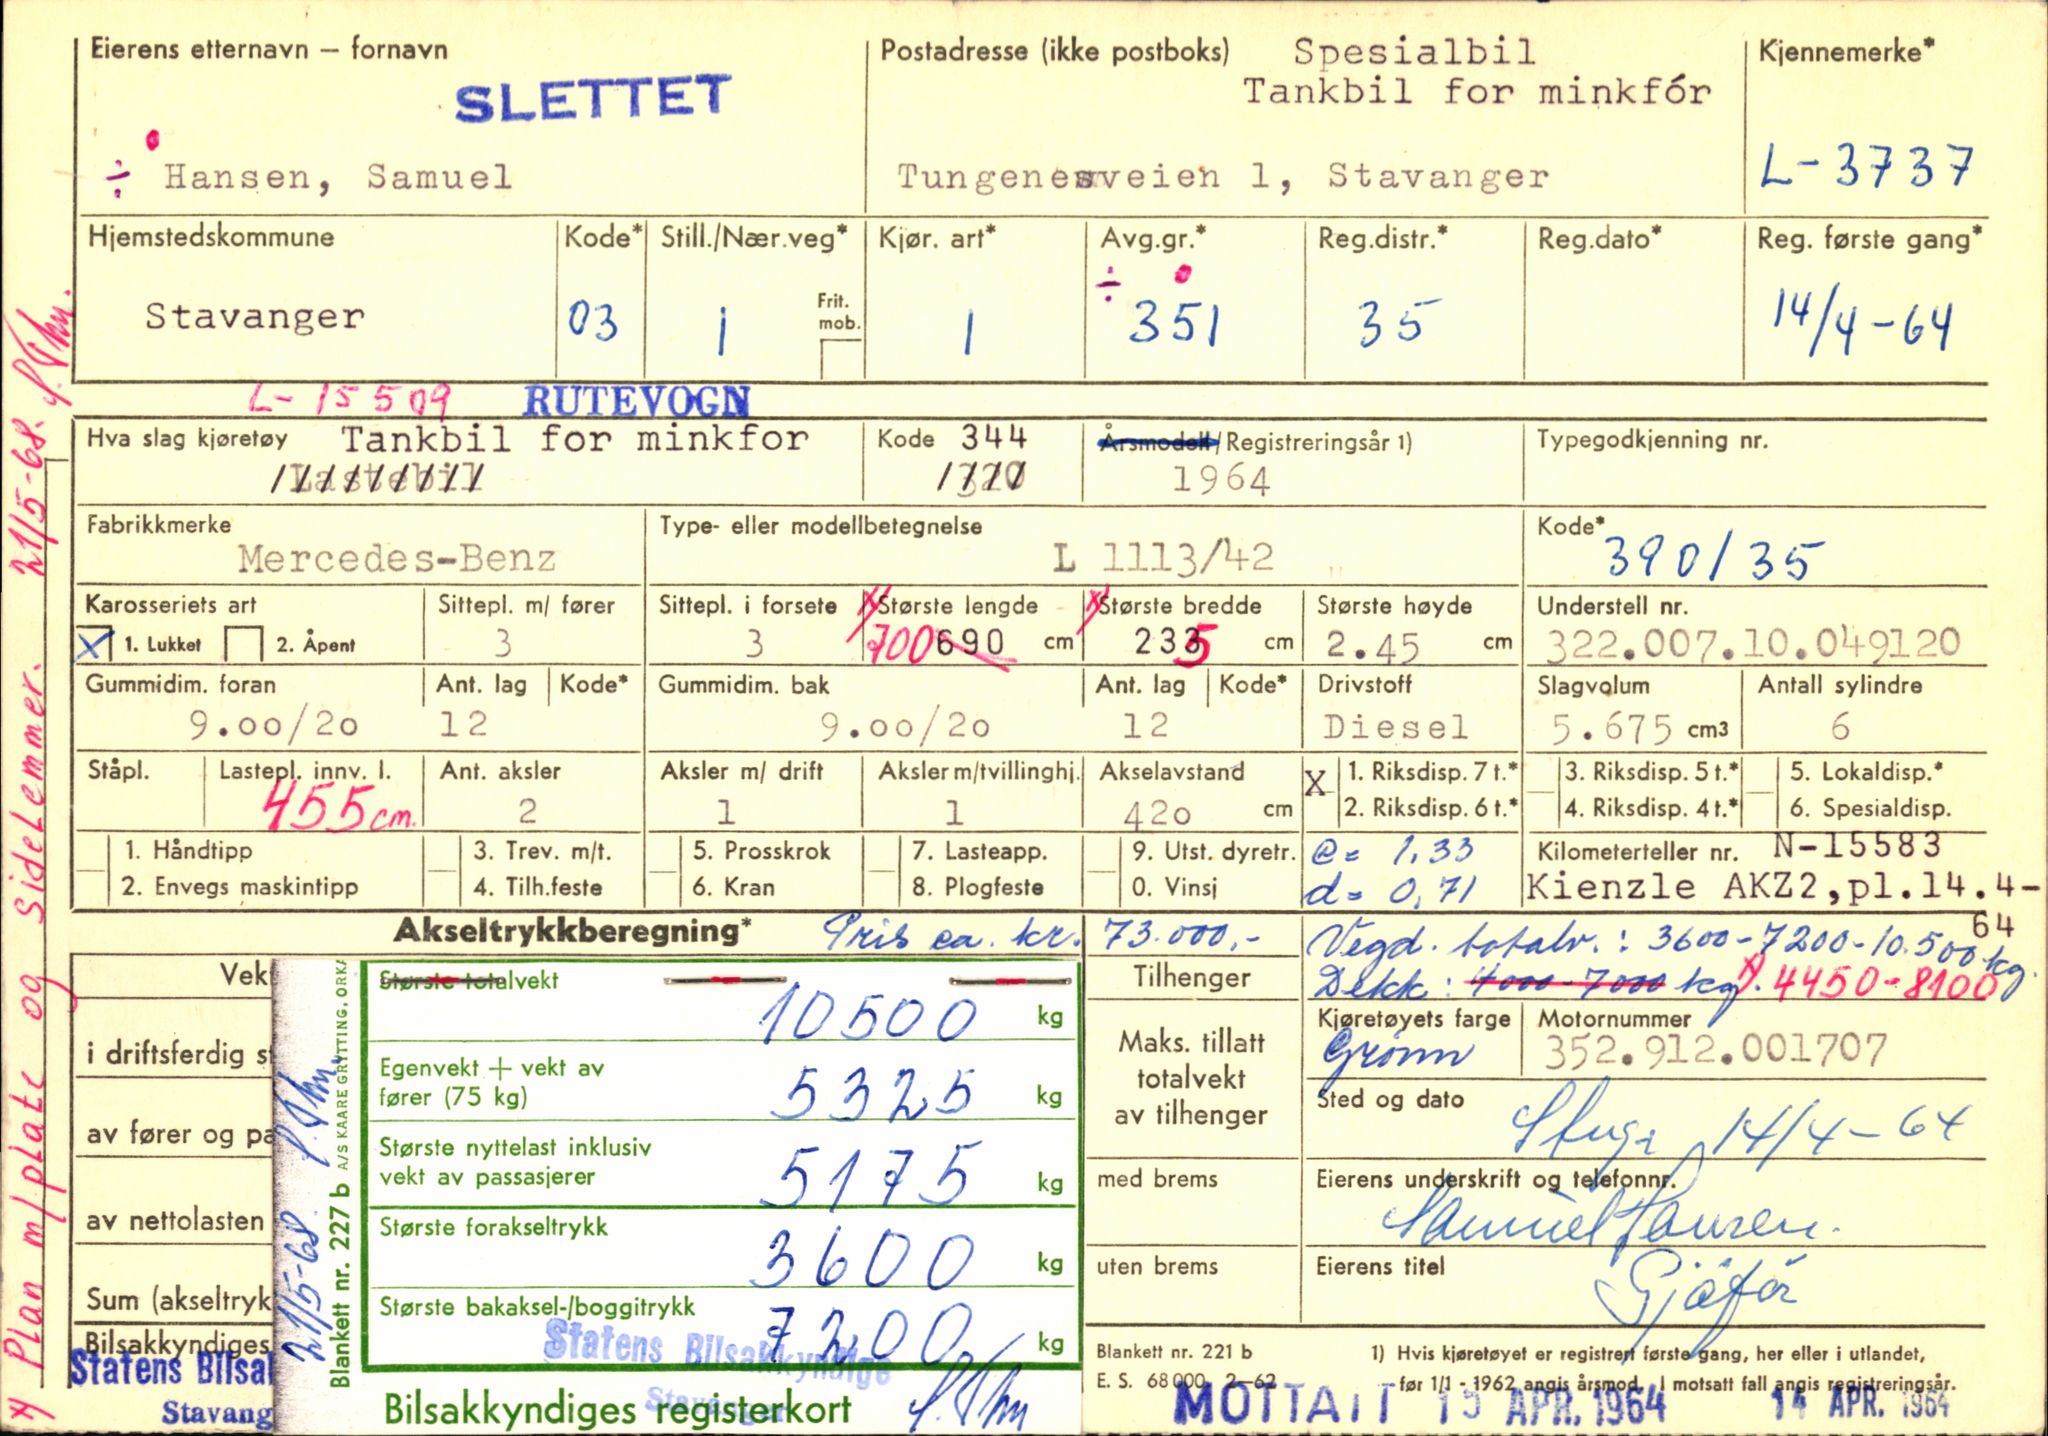 Eierens etternavn – fornavn
SLETTET
÷ Hansen, Samuel
Postadresse (ikke postboks) Spesialbil
Tankbil for minkfór
Tungenesveien 1, Stavanger
Kjennemerke*
L-3737
Hjemstedskommune
Stavanger
Kode*
03
Still./Nær.veg*
1
Frit.
mob.
Kjør. art*
1
Avg.gr.*
÷ 351
Reg.distr.*
35
Reg.dato*
Reg. første gang*
14/4-64
L-15509 RUTEVOGN
Hva slag kjøretøy Tankbil for minkfor
Lastebil
Kode 344
320
Årsmodell/Registreringsår 1)
1964
Typegodkjenning nr.
Fabrikkmerke
Mercedes-Benz
Type- eller modellbetegnelse
L 1113/42
Kode*
390/35
Karosseriets art
X 1. Lukket 2. Åpent
Sittepl. m/ fører
3
Sittepl. i forsete
3
x) Største lengde
700 690 cm
x) Største bredde
235 cm
Største høyde
2.45 cm
Understell nr.
322.007.10.049120
Gummidim. foran
9.00/20
Ant. lag
12
Kode*
Gummidim. bak
9.00/20
Ant. lag
12
Kode*
Drivstoff
Diesel
Slagvolum
5.675 cm3
Antall sylindre
6
Ståpl.
Lastepl. innv. l.
455 cm.
Ant. aksler
2
Aksler m/ drift
1
Aksler m/tvillinghj.
1
Akselavstand
420 cm
X 1. Riksdisp. 7 t.*
2. Riksdisp. 6 t.*
3. Riksdisp. 5 t.*
4. Riksdisp. 4 t.*
5. Lokaldisp.*
6. Spesialdisp.
1. Håndtipp
2. Envegs maskintipp
3. Trev. m/t.
4. Tilh.feste
5. Prosskrok
6. Kran
7. Lasteapp.
8. Plogfeste
9. Utst. dyretr.
0. Vinsj
e = 1,33
d = 0,71
Kilometerteller nr. N-15583
Kienzle AKZ2, pl.14.4-
64
Akseltrykkberegning* Pris ca. kr. 73.000,-
Vegd. totalv.: 3600-7200-10.500 kg.
Dekk: 4000-7000 kg. x) 4450-8100
Vekt
i driftsferdig st
av fører og pa
av nettolasten
Sum (akseltryk
Bilsakkyndiges
Statens Bilsak
Stavang
21/5-68
Blankett nr. 227 b A/S KAARE GRYTTING. ORKA
Største totalvekt
10500 kg
Egenvekt + vekt av
fører (75 kg)
5325 kg
Største nyttelast inklusiv
vekt av passasjerer
5175 kg
Største forakseltrykk
3600 kg
Største bakaksel-/boggitrykk
7200 kg
Statens Bilsakkyndige
Stavanger
Bilsakkyndiges registerkort
Tilhenger
Maks. tillatt
totalvekt
av tilhenger
med brems
uten brems
Kjøretøyets farge
Grønn
Motornummer
352.912.001707
Sted og dato
Stvgr 14/4-64
Eierens underskrift og telefonnr.
Samuel Hansen.
Eierens titel
Sjåfør
Blankett nr. 221 b
E. S. 68000 2-62
1) Hvis kjøretøyet er registrert første gang, her eller i utlandet,
før 1/1 - 1962 angis årsmod. I motsatt fall angis registreringsår.
MOTTATT 15 APR. 1964 14 APR. 1964
x) Plan m/plate og sidelemmer. 21/5-68.